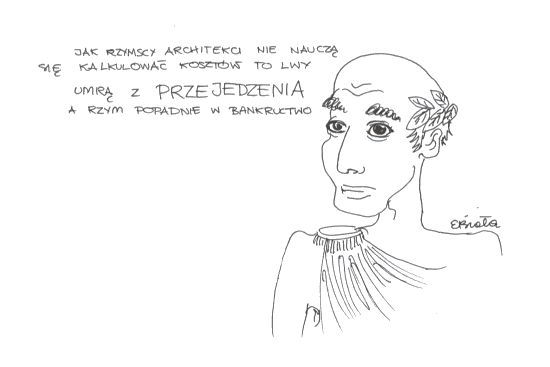 JAK RZYMSCY ARCHITEKCI NIE NAUCZĄ
SIĘ KALKULOWAĆ KOSZTÓW TO LWY
UMRĄ Z PRZEJEDZENIA
A RZYM POPADNIE W BANKRUCTWO